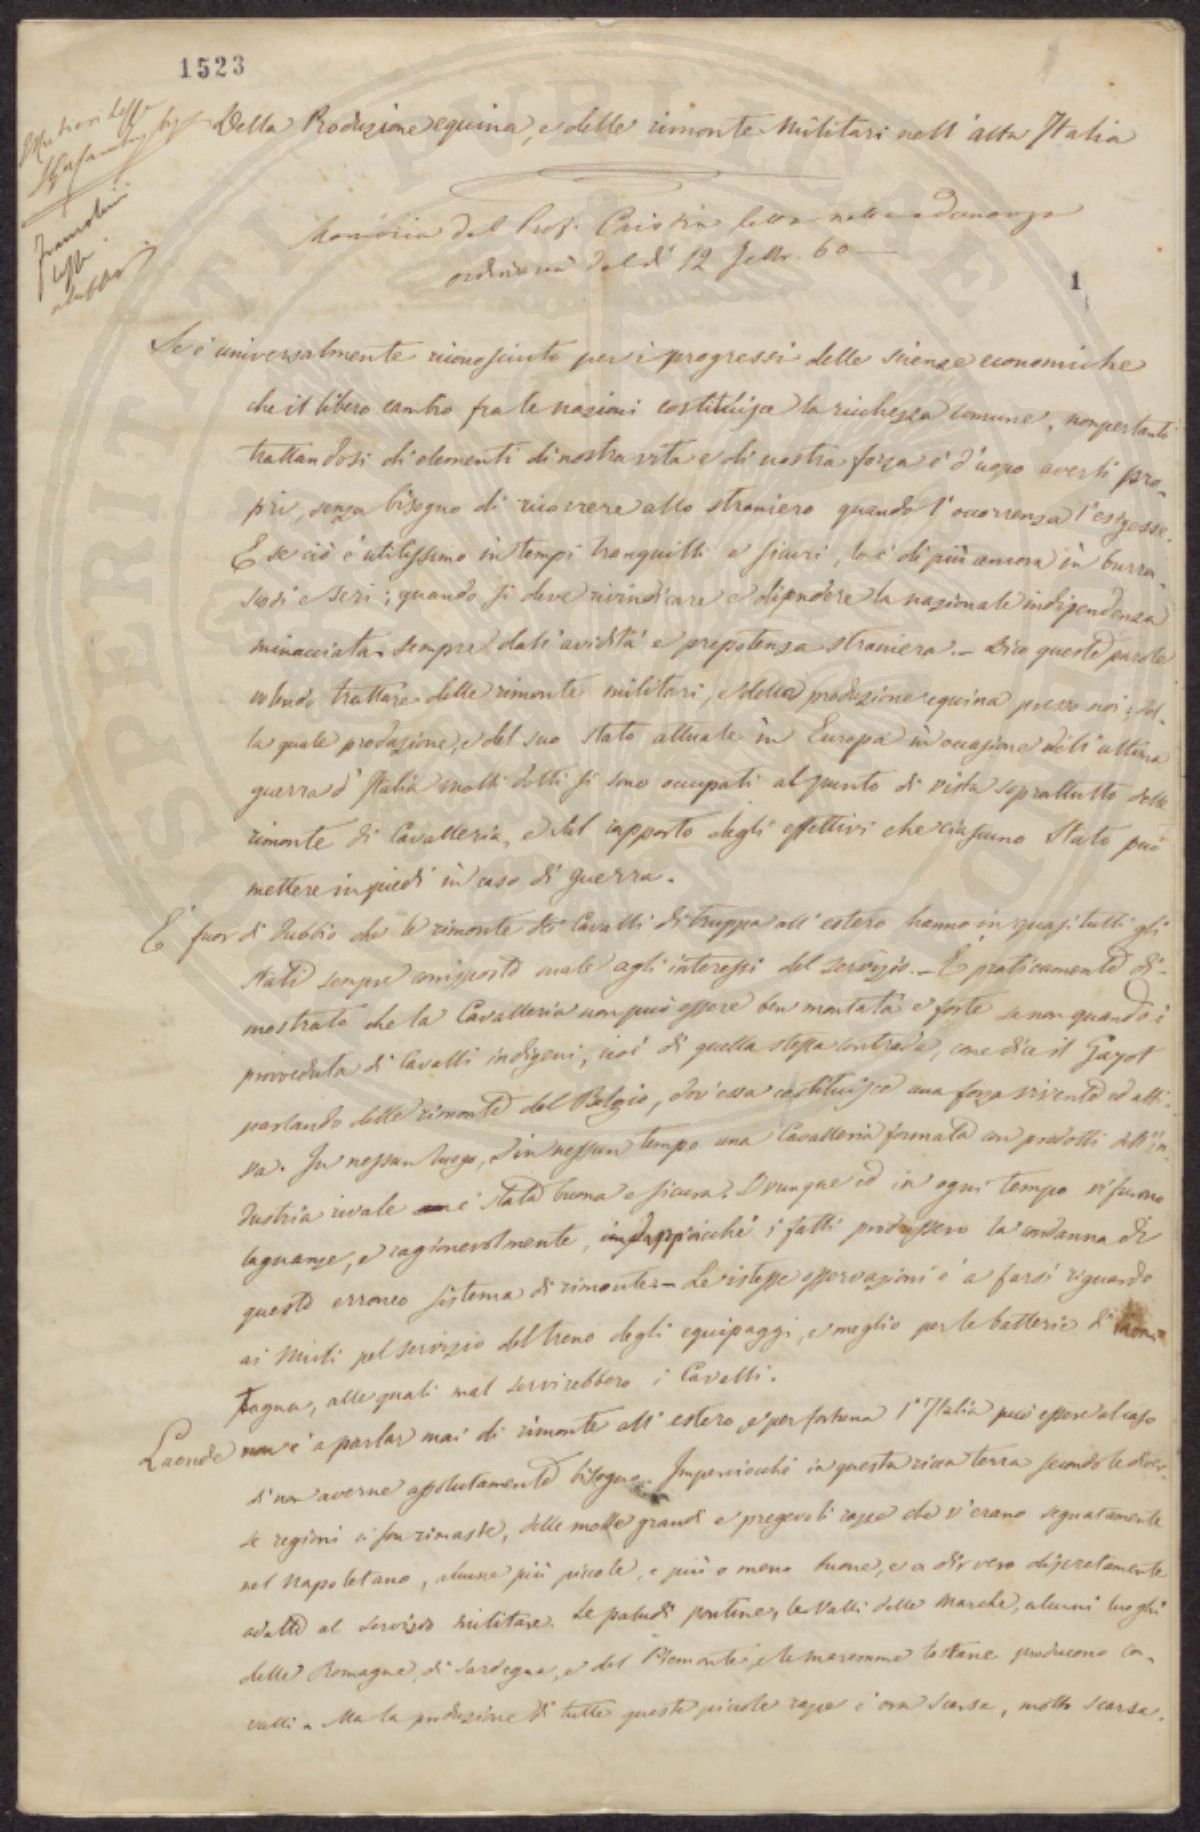 1523
Della Produzione equina, e delle rimonte militari nell'alta Italia
Memoria del Prof. Cristin letta nella adunanza
ordinaria del dì 12 Febbr. 60
1
Se è universalmente riconosciuto per i progressi delle scienze economiche
che il libero cambio fra le nazioni costituisce la ricchezza comune, nonpertanto
trattandosi di elementi di nostra vita e di nostra forza è d'uopo averli pro-
pri, senza bisogno di ricorrere allo straniero quando l'occorrenza l'esigesse.
E se ciò è utilissimo in tempi tranquilli e sicuri, lo è di più ancora in burra-
scosi e serj; quando si deve rivindicare e difendere la nazionale indipendenza
minacciata sempre dall'avidità e prepotenza straniera. - Dico queste parole
volendo trattare delle rimonte militari, e della produzione equina presso noi; del-
la quale produzione, e del suo stato attuale in Europa in occasione dell'ultima
guerra d'Italia molti dotti si sono occupati al punto di vista soprattutto delle
rimonte di Cavalleria, e del rapporto degli effettivi che ciascuno Stato può
mettere in piedi in caso di guerra.
È fuor di dubbio che le rimonte dei Cavalli di truppa all'estero hanno in quasi tutti gli
Stati sempre corrisposto male agli interessi del servizio. - È praticamente di-
mostrato che la Cavalleria non può essere ben montata e forte se non quando è
provveduta di Cavalli indigeni, cioè di quella stessa contrada, come dice il Gayot
parlando delle rimonte del Belgio, dov'essa costituisce una forza vivente ed atti-
va. In nessun luogo, e in nessun tempo una Cavalleria formata con prodotti dell'in-
dustria rivale è stata buona e sicura. Dovunque ed in ogni tempo vi furono
lagnanze, e ragionevolmente, i fatti produssero la condanna di
questo erroneo sistema di rimonte. - Le istesse osservazioni è a farsi riguardo
ai Muli pel servizio del treno degli equipaggi, e meglio per le batterie di mon-
tagna, alle quali mal servirebbero i Cavalli.
Laonde non è a parlar mai di rimonte all'estero, e per fortuna l'Italia può essere al caso
di non averne assolutamente bisogno. Imperciocchè in questa ricca terra secondo le diver-
se regioni ci son rimaste, delle molte grandi e pregevoli razze che v'erano segnatamente
nel Napoletano, alcune più piccole, e più o meno buone, e a dir vero discretamente
adatte al servizio militare. Le paludi pontine, le valli delle Marche, alcuni luoghi
delle Romagne, di Sardegna, e del Piemonte, e le maremme toscane producono ca-
valli. Ma la produzione di tutte queste piccole razze è ora scarsa, molto scarsa.